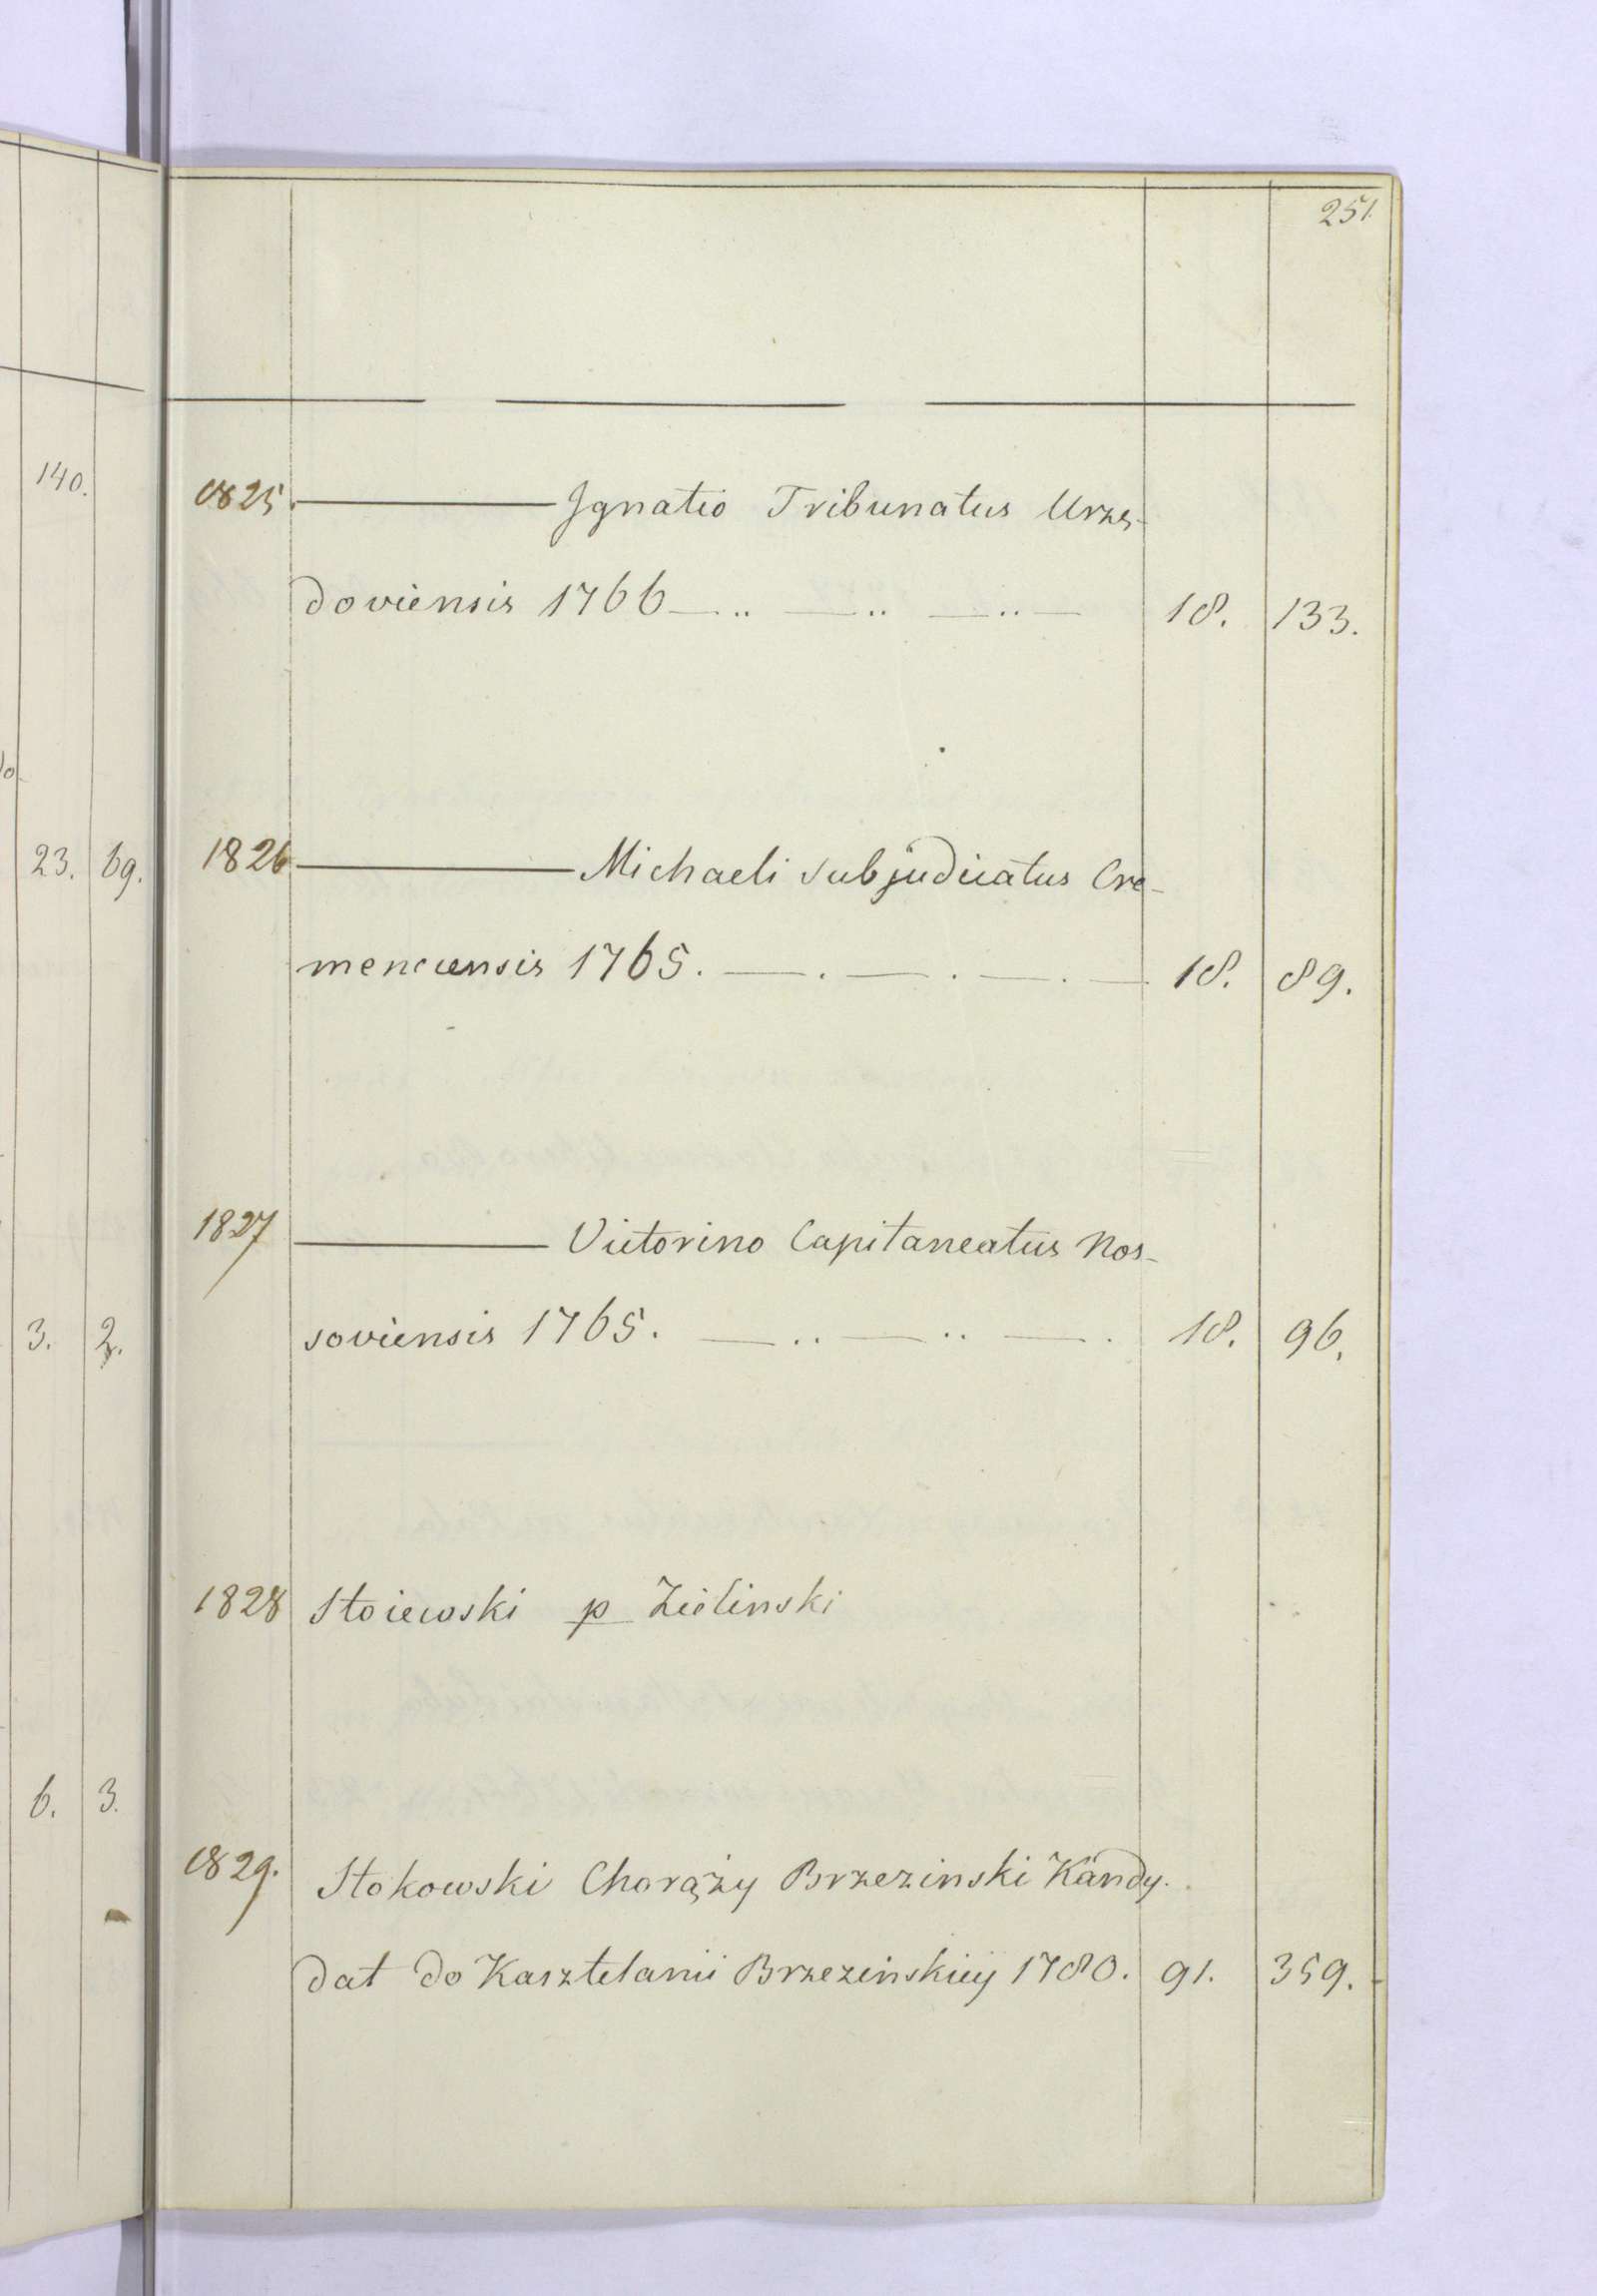 251.
140.
1825. Ignatio Tribunatus Urzę-
doviensis 1766 18. 133.
23. 69.
1826 Michaeli subjudicatus Cre-
menecensis 1765. 18. 89.
1827 Victorino Capitaneatus Nos-
soviensis 1765. 18. 96.
3. 2.
1828 Stoiewski p Zielinski
6. 3.
1829. Stokowski Chorąży Brzezinski Kandy-
dat do Kasztelanii Brzezinskiey 1780. 91. 359.